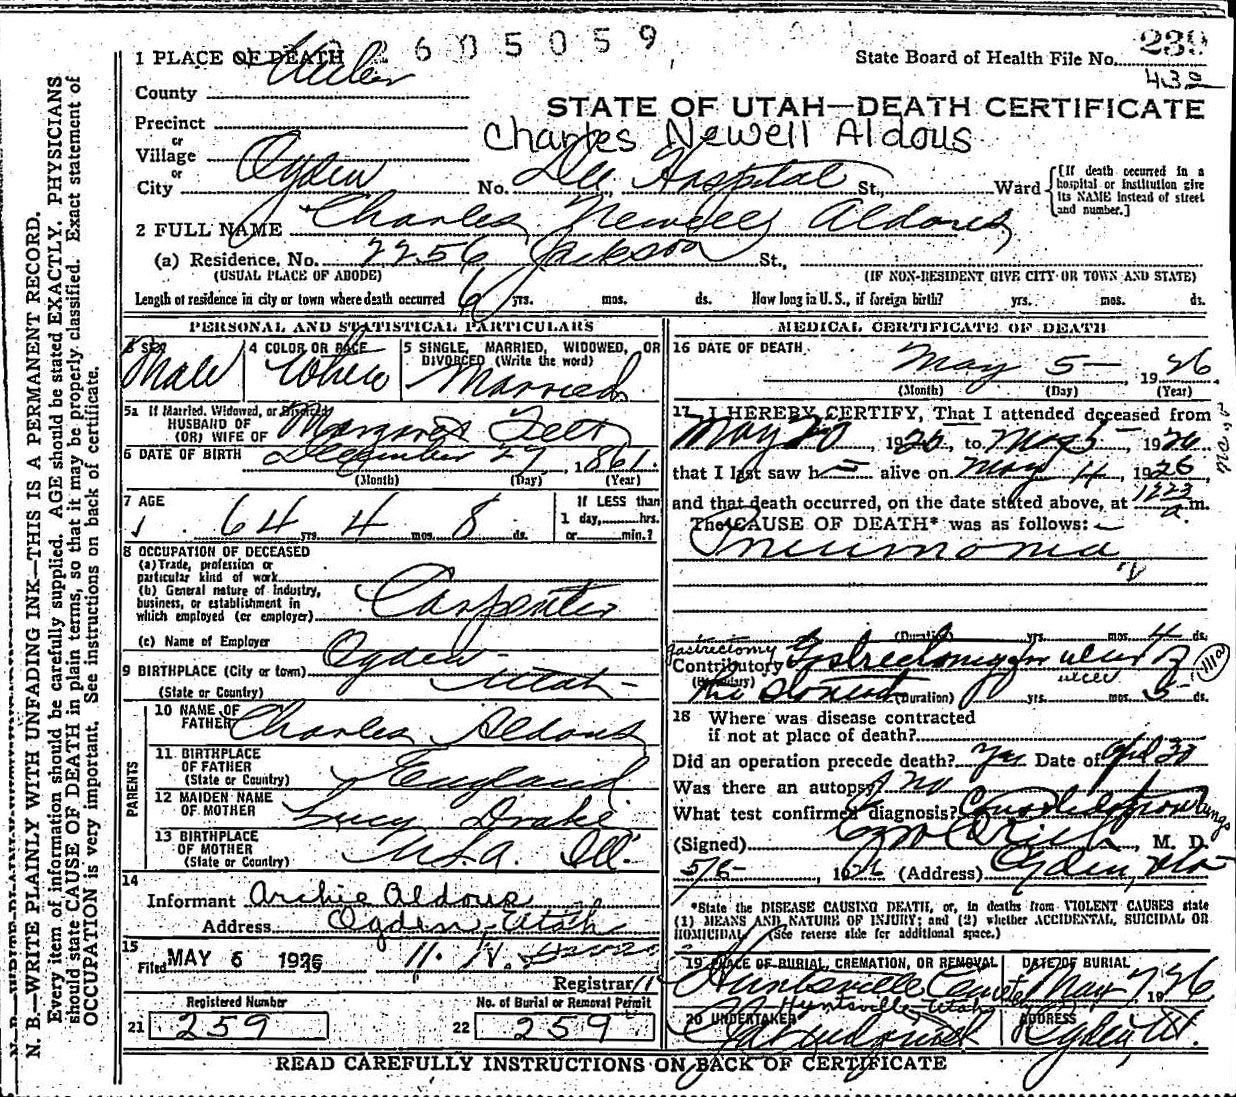 2605059
State Board of Health File No. 239
432
1 PLACE OF DEATH
County Weber
STATE OF UTAH—DEATH CERTIFICATE
Precinct
Charles Newell Aldous
or
Village
or
City Ogden No. Dee Hospital St., Ward
[If death occurred in a hospital or institution give its NAME instead of street and number.]
2 FULL NAME Charles Newell Aldous
(a) Residence. No. 2256 Jackson St.,
(USUAL PLACE OF ABODE) (IF NON-RESIDENT GIVE CITY OR TOWN AND STATE)
Length of residence in city or town where death occurred 6 yrs. mos. ds. How long in U. S., if foreign birth? yrs. mos. ds.
PERSONAL AND STATISTICAL PARTICULARS
3 SEX Male
4 COLOR OR RACE White
5 SINGLE, MARRIED, WIDOWED, OR DIVORCED (Write the word) Married
5a If Married, Widowed, or Divorced
HUSBAND OF
(OR) WIFE OF Margaret Felt
6 DATE OF BIRTH December 27, 1861.
(Month) (Day) (Year)
7 AGE 64 yrs. 4 mos. 8 ds.
If LESS than
1 day, hrs.
or min.?
8 OCCUPATION OF DECEASED
(a) Trade, profession or
particular kind of work
(b) General nature of Industry,
business, or establishment in
which employed (or employer) Carpenter
(c) Name of Employer
9 BIRTHPLACE (City or town) Ogden
(State or Country) Utah
PARENTS
10 NAME OF FATHER Charles Aldous
11 BIRTHPLACE OF FATHER
(State or Country) England
12 MAIDEN NAME OF MOTHER Lucy Drake
13 BIRTHPLACE OF MOTHER
(State or Country) U.S.A. Ill.
14
Informant Archie Aldous
Address Ogden, Utah
15
Filed MAY 6 1926
Registrar
Registered Number
21 259
No. of Burial or Removal Permit
22 259
MEDICAL CERTIFICATE OF DEATH
16 DATE OF DEATH May 5 1926
(Month) (Day) (Year)
17 I HEREBY CERTIFY, That I attended deceased from
May 20, 1926, to May 5 1926
that I last saw h alive on May 4, 1926
and that death occurred, on the date stated above, at 1223 a. m.
The CAUSE OF DEATH* was as follows:
Pneumonia
(Duration) yrs. mos. 4 ds.
gastrectomy
Contributory Gastrectomy for ulcer of
(Secondary) ulcer 111a
the Stomach (Duration) yrs. mos. 5 ds.
18 Where was disease contracted
if not at place of death?
Did an operation precede death? Yes Date of April 30
Was there an autopsy? no
What test confirmed diagnosis? Consolidation lungs
(Signed) Rich, M. D.
5/6, 1926 (Address) Ogden, Utah
*State the DISEASE CAUSING DEATH, or, in deaths from VIOLENT CAUSES state
(1) MEANS AND NATURE OF INJURY; and (2) whether ACCIDENTAL, SUICIDAL OR
HOMICIDAL. (See reverse side for additional space.)
19 PLACE OF BURIAL, CREMATION, OR REMOVAL
Huntsville Cemetery
Huntsville, Utah
DATE OF BURIAL
May 7, 1926
20 UNDERTAKER
ADDRESS
Ogden, Ut.
READ CAREFULLY INSTRUCTIONS ON BACK OF CERTIFICATE
N. B.—WRITE PLAINLY WITH UNFADING INK—THIS IS A PERMANENT RECORD.
Every item of information should be carefully supplied. AGE should be stated EXACTLY. PHYSICIANS
should state CAUSE OF DEATH in plain terms, so that it may be properly classified. Exact statement of
OCCUPATION is very important. See instructions on back of certificate.